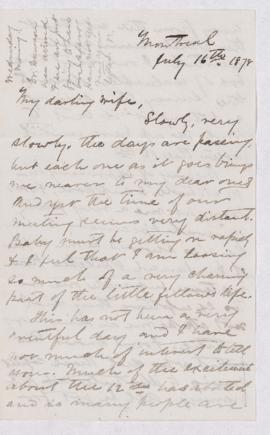 Montreal
July 16th 1878
My darling wife,
Slowly, very
slowly, the days are passing
but each one as it goes brings
me nearer to my dear ones
And yet the time of our
meeting seems very distant.
Baby must be getting on rapidly
& I feel that I am loosing
so much of a very charming
part of the little fellows life.
This has not been a very
eventful day and I have
not much of interest to tell
you. Much of the excitement
about the 12th has abated
and so many people are